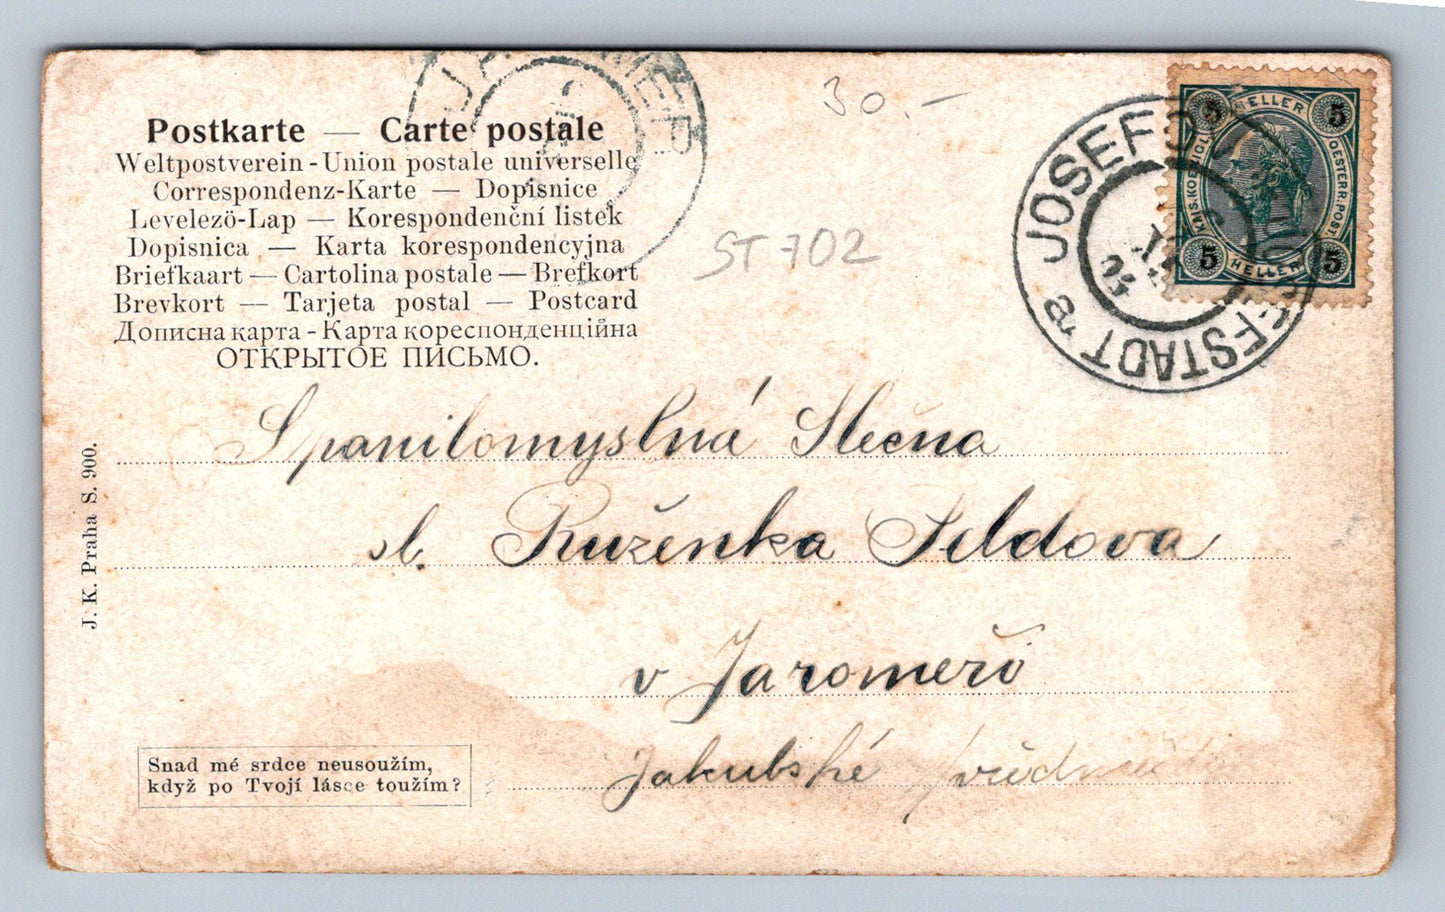 30.-
Postkarte — Carte postale
Weltpostverein - Union postale universelle
Correspondenz-Karte — Dopisnice
Levelezö-Lap — Korespondenční listek
Dopisnica — Karta korespondencyjna
Briefkaart — Cartolina postale — Brefkort
Brevkort — Tarjeta postal — Postcard
Дописна карта - Карта кореспонденційна
ОТКРЫТОЕ ПИСЬМО.
ST 702
5 HELLER 5
KAIS. KOENIGL. OESTERR. POST.
5 HELLER 5
JOSEFOV
JOSEFSTADT a
Spanilomyslná Slečna
sl. Růženka Seldova
v Jaroměři
Jakubské
J. K. Praha S. 900.
Snad mé srdce neusoužím,
když po Tvojí lásce toužím?